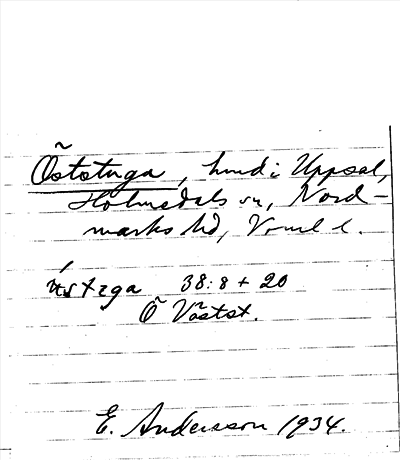 Östotuga, hmd i Uppsal,
Holmedals sn, Nord-
marks hd, Vrml l.
38:8 + 20
Ö Västst.
E. Andersson 1934.